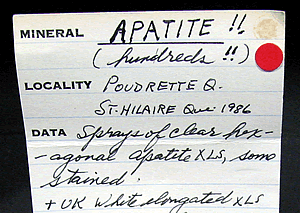 MINERAL APATITE !!
(hundreds !!)
LOCALITY POUDRETTE Q.
ST. HILAIRE Que 1986
DATA Sprays of clear hex-
-agonal apatite XLS, some
stained!
+ UK White elongated XLS